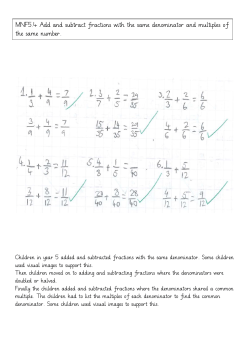 MNF5.4 Add and subtract fractions with the same denominator and multiples of
the same number.
1. 1/3 + 4/9 = 7/9
2. 3/7 + 2/5 = 29/35
3. 2/3 + 2/6 = 6/6
3/9 + 4/9 = 7/9
15/35 + 14/35 = 29/35
4/6 + 2/6 = 6/6
4. 1/4 + 2/3 = 11/12
5. 4/8 + 1/5 =
6. 1/3 + 5/12
3/12 + 8/12 = 11/12
20/40 + 8/40 = 28/40
4/12 + 5/12 = 9/12
Children in year 5 added and subtracted fractions with the same denominator. Some children
used visual images to support this.
Then children moved on to adding and subtracting fractions where the denominators were
doubled or halved.
Finally the children added and subtracted fractions where the denominators shared a common
multiple. The children had to list the multiples of each denominator to find the common
denominator. Some children used visual images to support this.